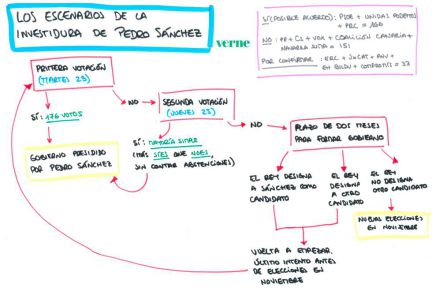 LOS ESCENARIOS DE LA
INVESTIDURA DE PEDRO SÁNCHEZ
verne
SÍ (POSIBLE ACUERDO): PSOE + UNIDAS PODEMOS
+ PRC = 166
NO: PP + Cs + VOX + COALICIÓN CANARIA +
NAVARRA SUMA = 151
POR CONFIRMAR: ERC + JxCAT + PNV +
EH BILDU + COMPROMÍS = 33
PRIMERA VOTACIÓN
(MARTES 23)
NO
SEGUNDA VOTACIÓN
(JUEVES 25)
NO
PLAZO DE DOS MESES
PARA FORMAR GOBIERNO
SÍ: 176 VOTOS
SÍ: MAYORÍA SIMPLE
(MÁS SÍES QUE NOES,
SIN CONTAR ABSTENCIONES)
GOBIERNO PRESIDIDO
POR PEDRO SÁNCHEZ
EL REY DESIGNA
A SÁNCHEZ COMO
CANDIDATO
EL REY
DESIGNA
A OTRO
CANDIDATO
EL REY
NO DESIGNA
OTRO CANDIDATO
NUEVAS ELECCIONES
EN NOVIEMBRE
VUELTA A EMPEZAR.
ÚLTIMO INTENTO ANTES
DE ELECCIONES EN
NOVIEMBRE